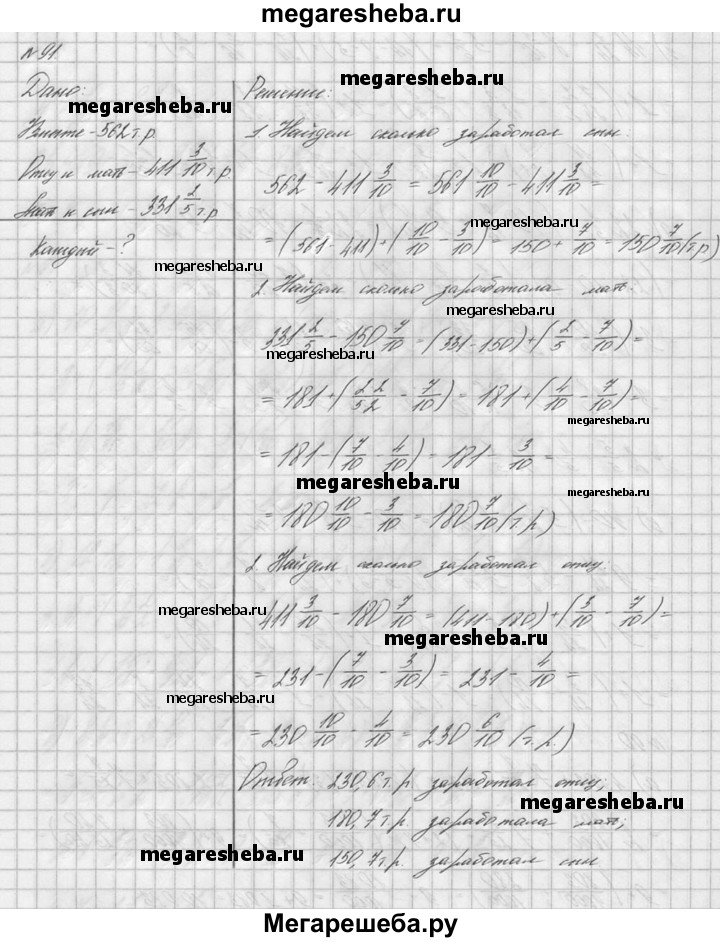 megaresheba.ru
№91.
Дано:
megaresheba.ru
Вместе - 562 т.р.
Отец и мать - 411 3/10 т.р.
Мать и сын - 331 2/5 т.р.
Каждый - ?
megaresheba.ru
Решение:
megaresheba.ru
1. Найдем сколько заработал сын.
562 - 411 3/10 = 561 10/10 - 411 3/10 =
megaresheba.ru
= (561 - 411) + (10/10 - 3/10) = 150 + 7/10 = 150 7/10 (т.р)
2. Найдем сколько заработала мать.
megaresheba.ru
331 2/5 - 150 7/10 = (331 - 150) + (2/5 - 7/10) =
megaresheba.ru
= 181 + (22/52 - 7/10) = 181 + (4/10 - 7/10) =
megaresheba.ru
= 181 - (7/10 - 4/10) = 181 - 3/10 =
megaresheba.ru
megaresheba.ru
= 180 10/10 - 3/10 = 180 7/10 (т.р.)
2. Найдем сколько заработал отец
megaresheba.ru
411 3/10 - 180 7/10 = (411 - 180) + (3/10 - 7/10) =
megaresheba.ru
= 231 - (7/10 - 3/10) = 231 - 4/10 =
megaresheba.ru
= 230 10/10 - 4/10 = 230 6/10 (т.р.)
Ответ: 230,6 т.р. заработал отец;
megaresheba.ru
180,7 т.р. заработала мать;
megaresheba.ru
150,7 т.р. заработал сын
Мегарешеба.ру